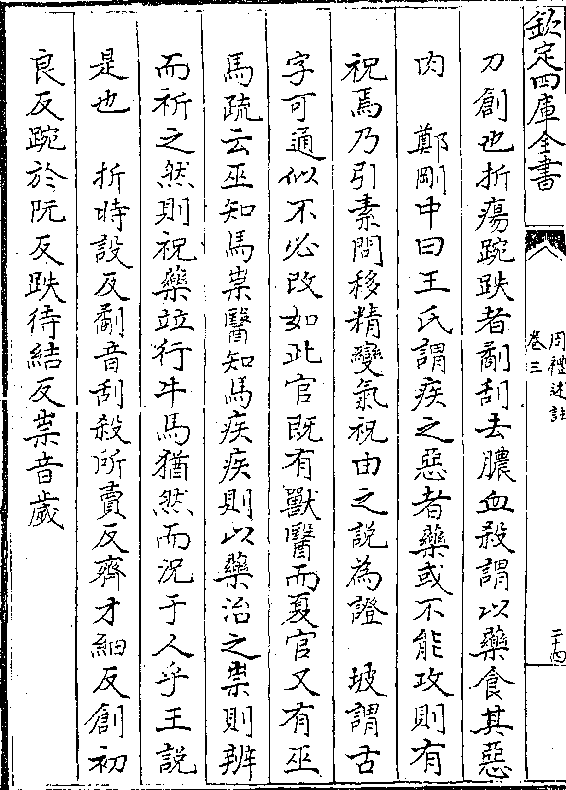 欽定四庫全書
周禮述註
卷三
二十四
刀創也折瘍踠跌者劀刮去膿血殺謂以藥食其惡
肉　鄭剛中曰王氏謂疾之惡者藥或不能攻則有
祝焉乃引素問移精變氣祝由之說為證　坡謂古
字可通似不必改如此官既有獸醫而夏官又有巫
馬疏云巫知馬祟醫知馬疾疾則以藥治之祟則辨
而祈之然則祝藥竝行牛馬猶然而況于人乎王說
是也　折時設反劀音刮殺所賣反齊才細反創初
良反踠於阮反跌待結反祟音歲